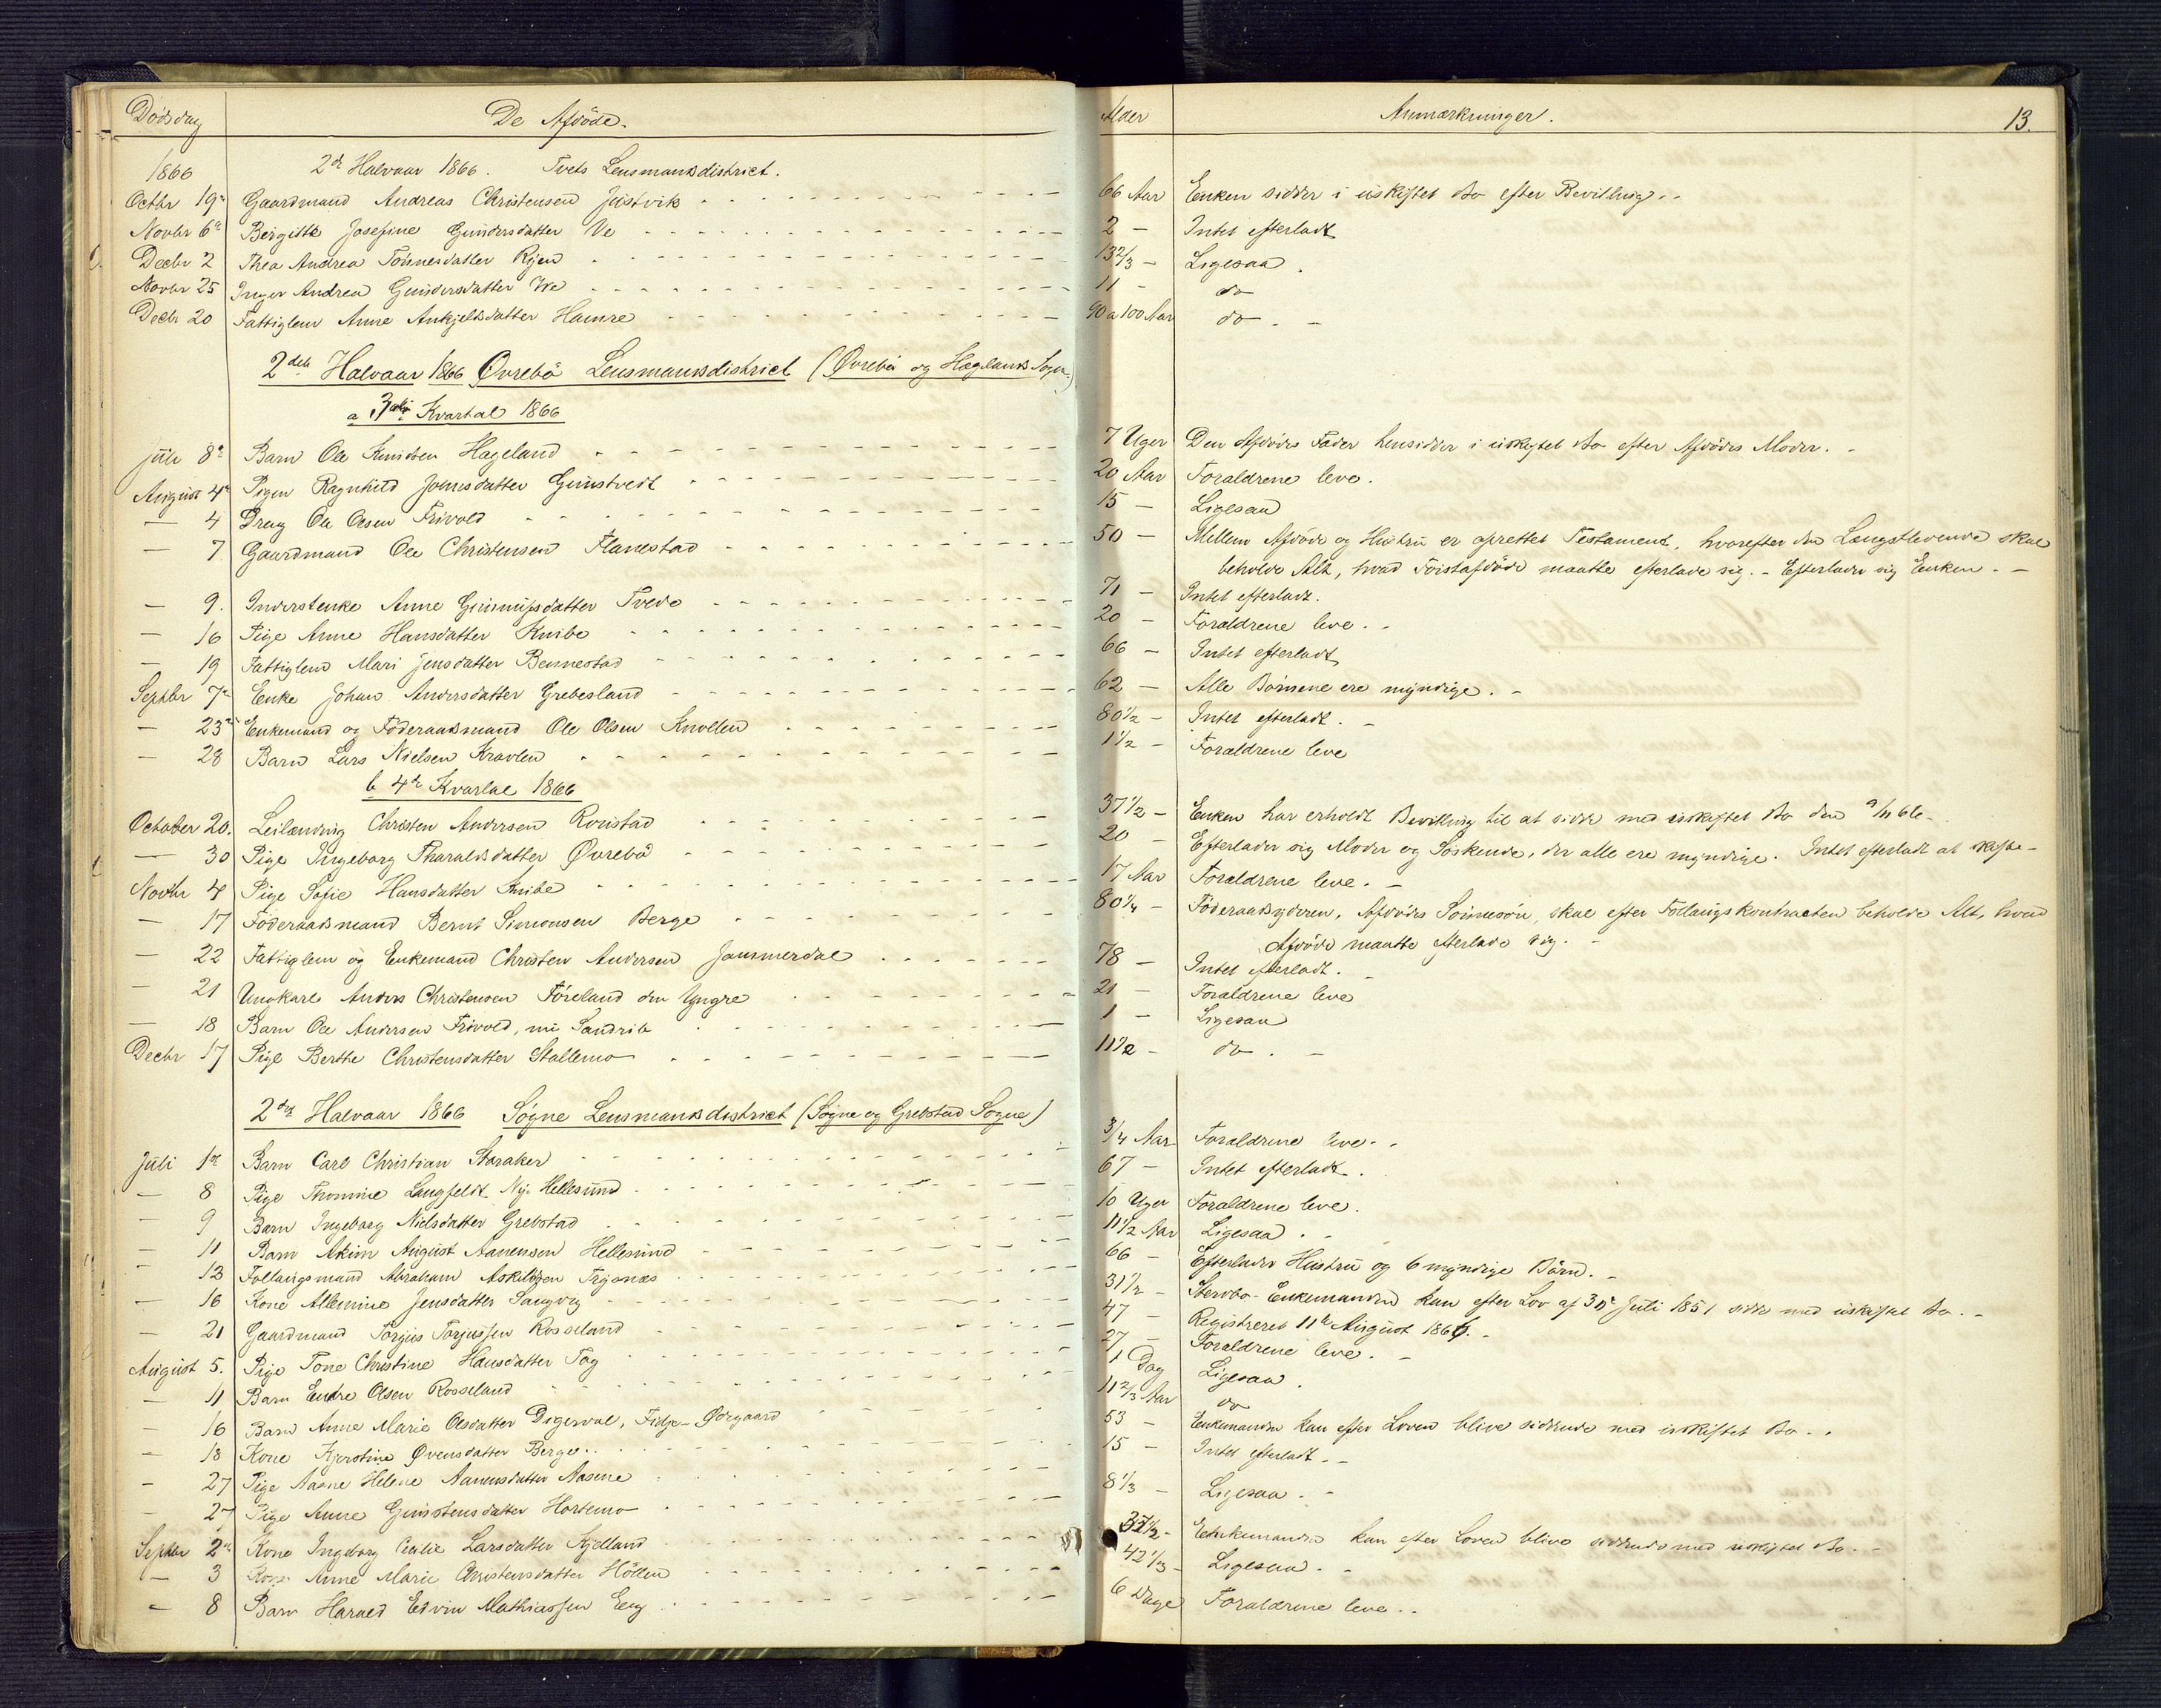 Dödsdag De Afdöde. Alder Anmærkninger. 13.
1866 2det Halvaar 1866. Tvets Lensmandsdistrict.
Octbr 19de Gaardmand Andreas Christensen Justvik 66 Aar Enken sidder i uskiftet Bo efter Bevilling.
Novbr 6te Bergitte Josefine Gundersdatter Ve 2 — Intet efterladt
Decbr 2 Thea Andrea Tönnesdatter Ryen 13 2/3 — Ligesaa.
Novbr 25 Inger Andrea Gundersdatter We 11 — do
Decbr 20 Fattiglem Anne Ankjeltsdatter Hamre 90 a 100 Aar do. —
2det Halvaar 1866 Øvrebö Lensmandsdistrict (Øvrebö og Hægelands Sogne.)
a 3die Kvartal 1866
Juli 8de Barn Ole Knudsen Hageland 7 Uger Den Afdödes Fader hensidder i uskiftet Bo efter Afdödes Moder. -
August 4de Pigen Ragnhild Jonnsdatter Gunstvedt 20 Aar Forældrene leve.
— 4 Dreng Ole Olsen Frivold 15 — Ligesaa
— 7 Gaardmand Ole Christensen Flanestad 50 — Mellem Afdöde og Hustru er oprettet Testament, hvorefter den Længstlevende skal
beholde Alt, hvad Förstafdöde maatte efterlade sig. - Efterlader sig Enken. -
— 9. Inderstenke Anne Gunnufsdatter Tvede 71 — Intet efterladt.
— 16 Pige Anne Hansdatter Knibe 20 — Forældrene leve. -
— 19 Fattiglem Mari Jensdatter Bennestad 66 — Intet efterladt
Septbr 7de Enke Johan Andersdatter Grebesland 62 — Alle Börnene ere myndige. -
— 23de Enkemand og Föderaadsmand Ole Olsen Knollen 80 1/2 — Intet efterladt. -
— 28 Barn Lars Nielsen Kravlen 1 1/2 — Forældrene leve
b 4de Kvartal 1866
October 20. Leilænding Christen Andersen Ronstad 37 1/2 — Enken har erholdt Bevilling til at sidde med uskiftet Bo den 9/11 66-
— 30 Pige Ingeborg Tharaldsdatter Øvrebö 20 — Efterlader sig Moder og Söskende, der alle ere myndige. Intet efterladt at skifte-
Novbr 4 Pige Sofie Hansdatter Knibe 17 Aar Forældrene leve. -
— 17 Föderaadsmand Bernt Simonsen Berge 80 1/4 — Föderaadsyderen, Afdödes Sönnesön, skal efter Follaugskontracten beholde Alt, hvad
Afdöde maatte efterlade sig. -
— 22 Fattiglem og Enkemand Christen Andersen Jammerdal 78 — Intet efterladt. -
— 21 Ungkarl Anders Christensen Föreland den Yngre 21 — Forældrene leve
— 18 Barn Ole Andersen Frivold, nu Sandrib 1 — Ligesaa
Decbr 17 Pige Berthe Christensdatter Stallemo 11 1/2 — do. -
2det Halvaar 1866 Søgne Lensmandsdistrict (Søgne og Grebstad Sogne)
Juli 1ste Barn Carl Christian Staraker 3/4 Aar Forældrene leve. -
— 8 Pige Thomine Langfeldt Ny-Hellesund 67 — Intet efterladt.
— 9 Barn Ingeborg Nielsdatter Grebstad 10 Uger Forældrene leve.
— 11 Barn Akim August Aanensen Hellesund 11 1/2 Aar Ligesaa. -
— 13 Follaugsmand Abraham Askildsen Trysnæs 66 — Efterlader Hustru og 6 myndige Börn. -
— 16 Kone Allemine Jensdatter Sangvig 31 1/2 — Stervbo-Enkemanden kan efter Lov af 30te Juli 1851 sidde med uskiftet Bo. -
— 21 Gaardmand Torjus Torjussen Rosseland 47 — Registreret 11te August 1866. -
August 5. Pige Tone Christine Hansdatter Tag 27 — Forældrene leve. -
— 11 Barn Endre Olsen Rosseland 1 Dag Ligesaa.
— 16 Barn Anne Marie Olsdatter Digervol, Fidje-Ødegaard 11 2/3 Aar do
— 18 Kone Kjerstine Ovensdatter Berge 53 — Enkemanden kan efter Loven blive siddende med uskiftet Bo. -
— 27 Pige Aasne Helene Aanensdatter Aasene 15 — Intet efterladt. -
— 27 Pige Anne Gunstensdatter Hortemo 8 1/3 — Ligesaa. -
Septbr 2den Kone Ingeborg Cecilie Larsdatter Kjelland 37 1/2 - Enkemanden kan efter Loven blive siddende med uskiftet Bo. -
— 3 Kone Anne Marie Christensdatter Höllen 42 1/3 - Ligesaa. -
— 8 Barn Harald Edvin Mathiassen Eeg 6 Dage Forældrene leve. -